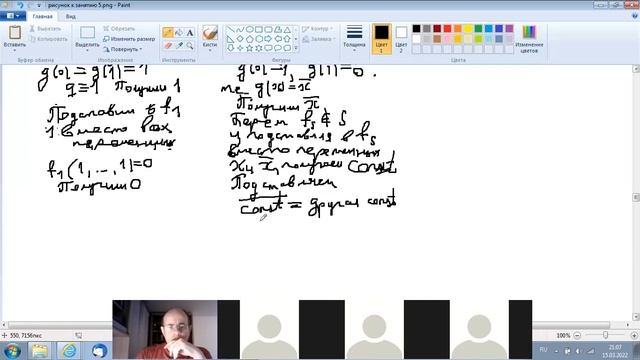 рисунок к занятию 5.png - Paint
Главная Вид
Вставить
Выделить
Кисти
Контур
Заливка
Толщина
Цвет 1
Цвет 2
Изменение цветов
Буфер обмена Изображение Инструменты Фигуры Цвета
g(0)=g(1)=1
g≡1 Получим 1
Подставим в f1
1 вместо всех
переменных
f1(1,...,1)=0
Получим 0
g(0)=1, g(1)=0.
те g(x)=x̄
Получим x̄
Берем fs ∉ S
и подставляя в fs
вместо переменных
x и x̄, получаем const
Подставляем
const = другая const
550, 7156пкс
100%
RU
21:07
15.03.2022